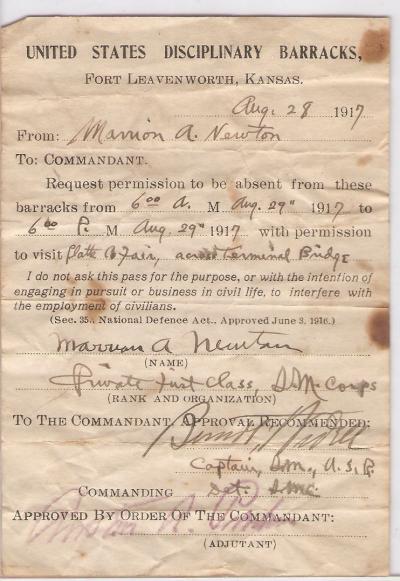 UNITED STATES DISCIPLINARY BARRACKS,
FORT LEAVENWORTH, KANSAS.
Aug. 28 1917
From: Marrion A. Newton
TO: COMMANDANT.
Request permission to be absent from these
barracks from 6 00 A. M Aug. 29" 1917 to
6 00 P. M Aug. 29" 1917 with permission
to visit Platte Co Fair, across Terminal Bridge
I do not ask this pass for the purpose, or with the intention of
engaging in pursuit or business in civil life, to interfere with
the employment of civilians.
(Sec. 35., National Defence Act., Approved June 3, 1916.)
Marrion A Newton
(NAME)
Private First Class, Corps
(RANK AND ORGANIZATION)
TO THE COMMANDANT, APPROVAL RECOMMENDED:
Captain,
COMMANDING Det.
APPROVED BY ORDER OF THE COMMANDANT:
(ADJUTANT)